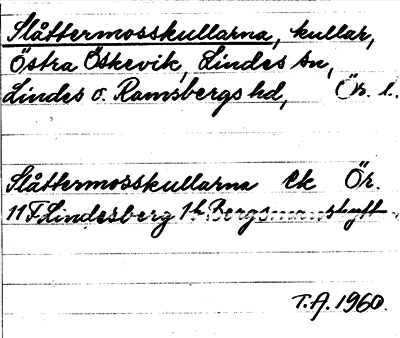 Slåttermosskullarna, kullar,
Östra Öskevik, Lindes sn,
Lindes o. Ramsbergs hd, Ör. l.
Slåttermosskullarna ek Ör.
11F Lindesberg 1h Bergsmanshytt
T.A. 1960.